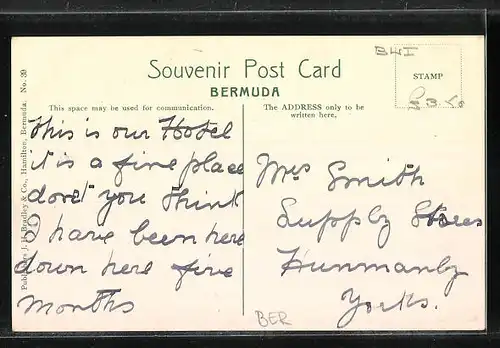 BWI
Souvenir Post Card
BERMUDA
STAMP
This space may be used for communication.
The ADDRESS only to be written here.
This is our Hotel
it is a fine place
dont you think
I have been here
down here five
months
Mrs Smith
Supply Stores
Hunmanby
Yorks.
BER
Publishers J. H. Bradley & Co., Hamilton, Bermuda. No. 39